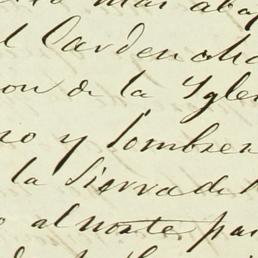 mas abaj
l Cardencha
on de la Ygle
no y lombre
la Sierra de
o al norte par